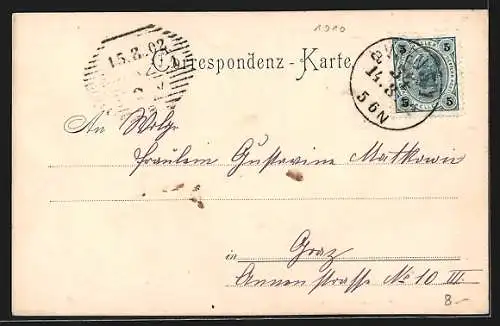 1910
15.8.02
Correspondenz-Karte.
5 5
14.8
5 6N
5 5
An Wolge
Fräulein Gustavine Matkowic
in Graz
Annenstrasse No 10 III
8-